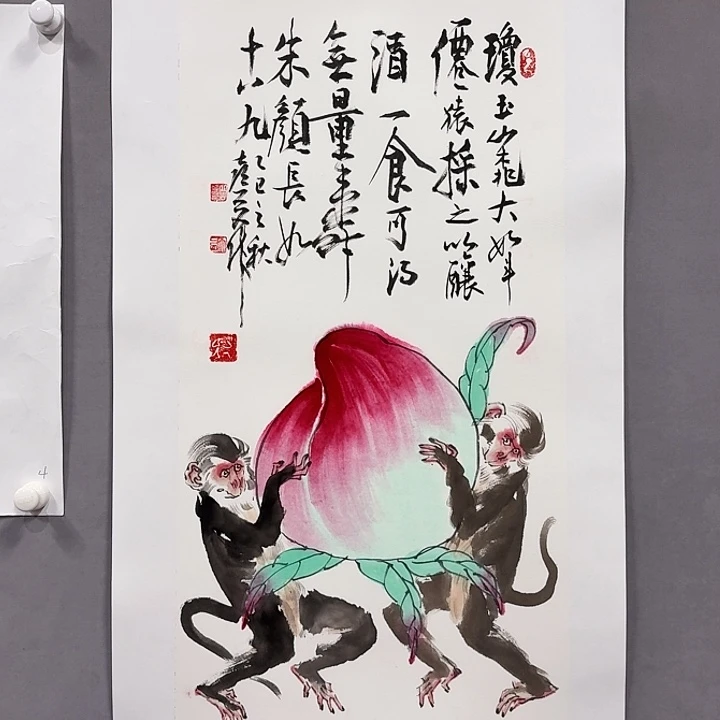 瓊玉山桃大如斗
僊猿採之以釀
酒一食可得
無量壽
朱顏長如
十八九
乙巳之秋
4